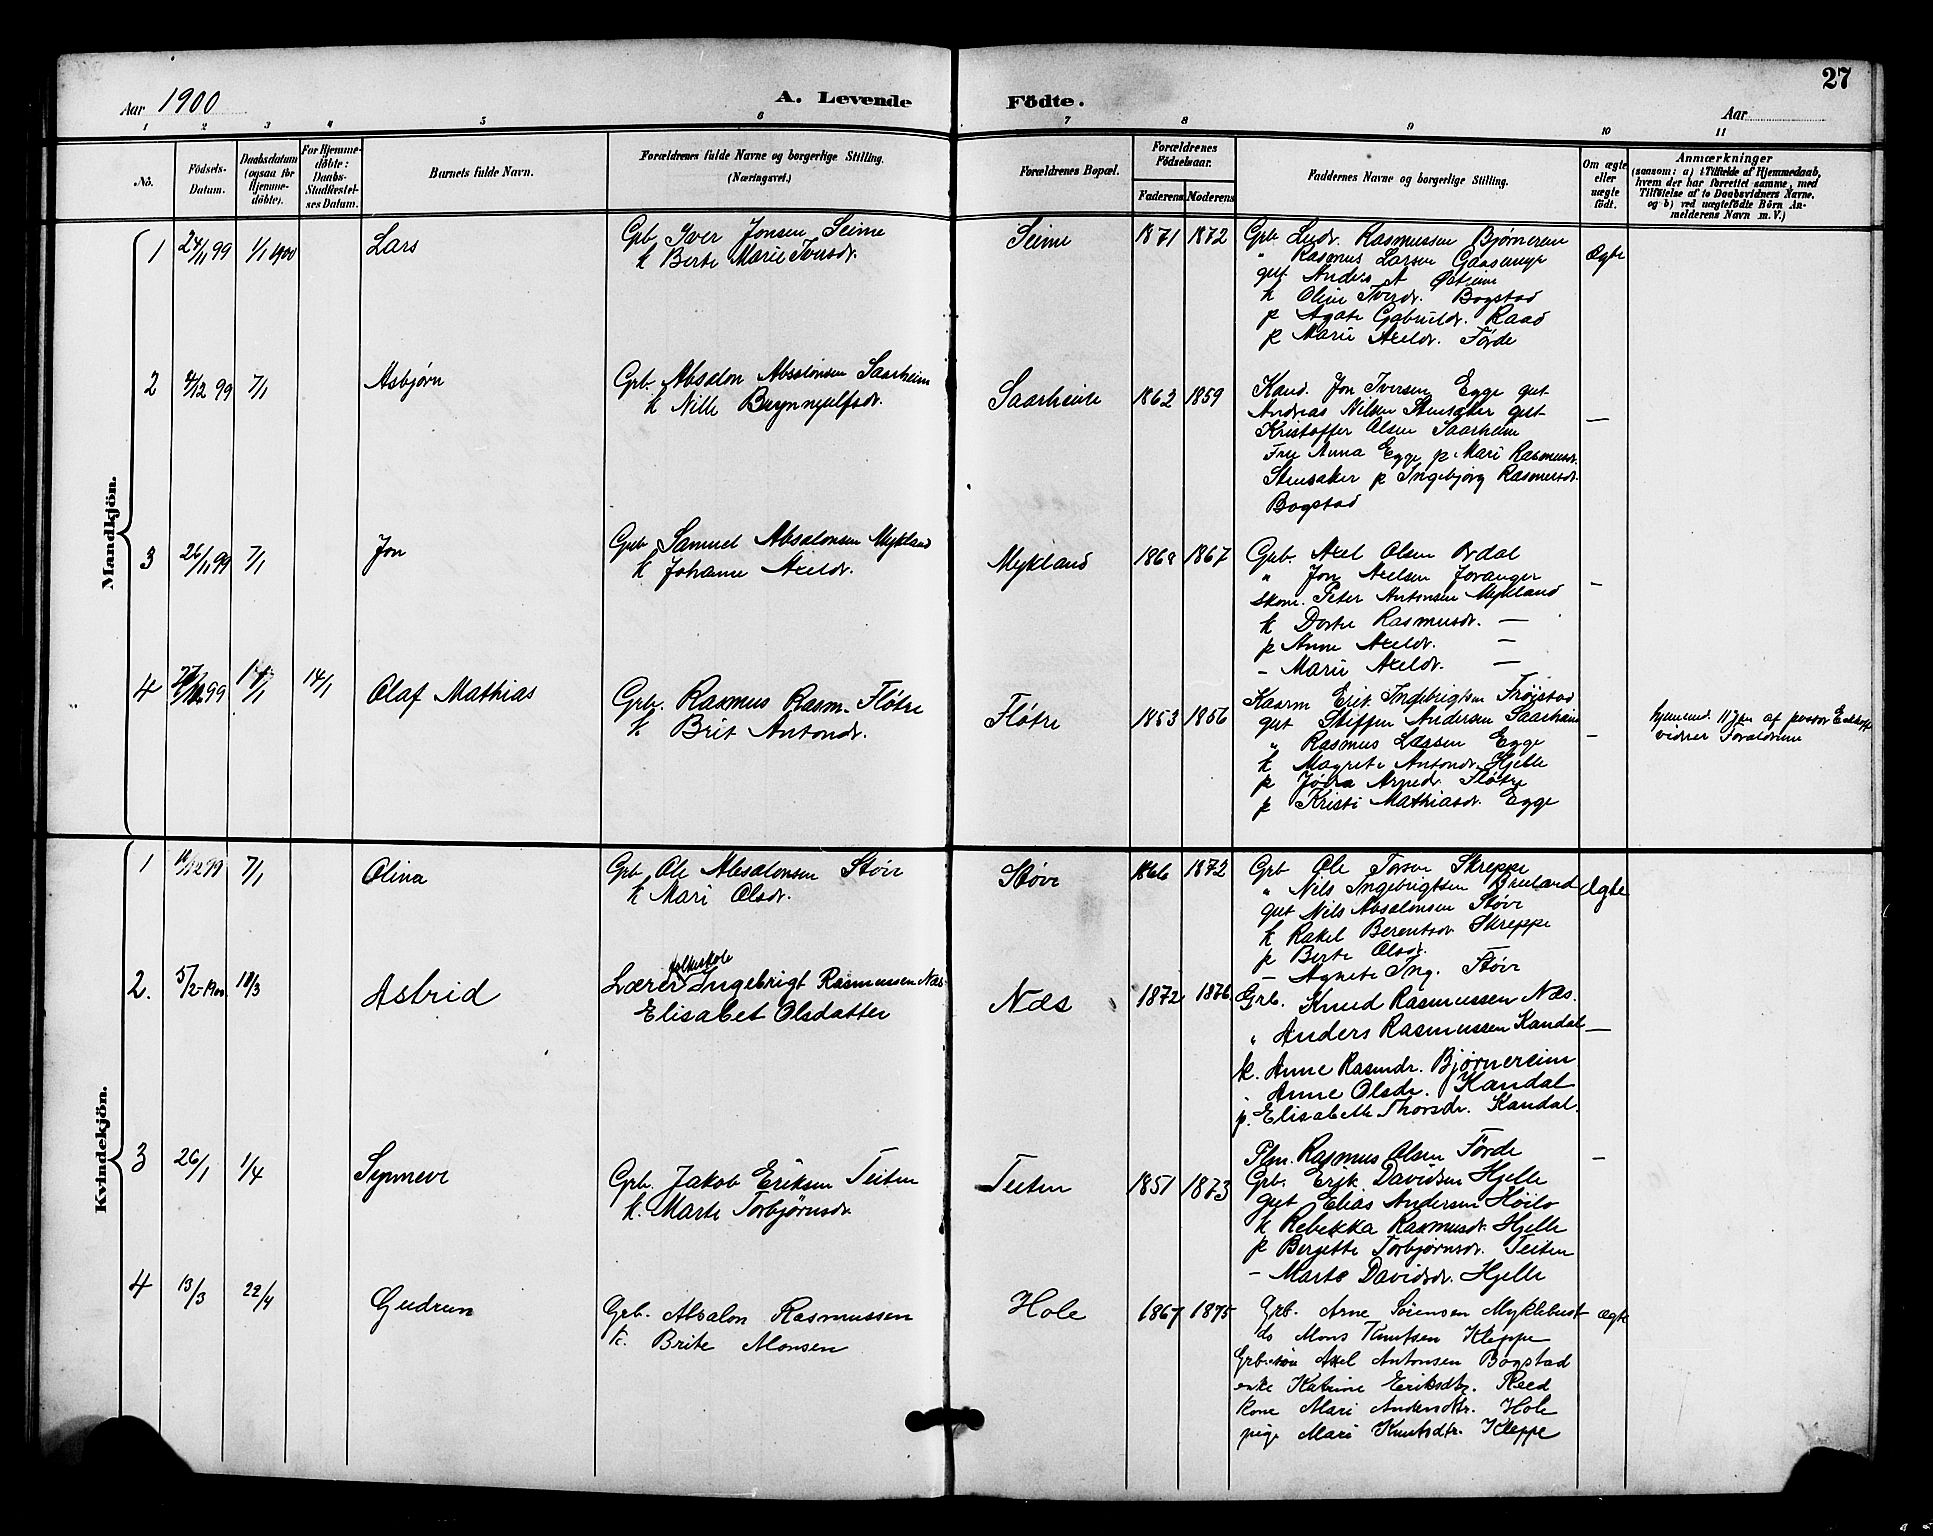 27
Aar 1900
A. Levende Födte.
Aar
1 2 3 4 5 6 7 8 9 10 11
No.
Födsels-Datum.
Daabsdatum (ogsaa for Hjemmedöbte).
For Hjemmedöbte: Daabs-Stadfæstelses Datum.
Barnets fulde Navn.
Forældrenes fulde Navne og borgerlige Stilling. (Næringsvei.)
Forældrenes Bopæl.
Forældrenes Födselsaar.
Faderens Moderens
Faddernes Navne og borgerlige Stilling.
Om ægte eller uægte födt.
Anmærkninger
(saasom: a) i Tilfælde af Hjemmedaab,
hvem der har forrettet samme, med
Tilföielse af to Daabsvidners Navne,
og b) ved uægtefödte Börn An-
melderens Navn m. V.)
Mandkjön.
1 24/11 99 1/1 1900 Lars
Grb. Iver Jonsen Seime
k Berte Marie Iversdr.
Seime 1871 1872
Grb Ludv. Rasmussen Bjørnereim
" Rasmus Larsen
gut Anders A
k Oline Iversdr. Bogstad
p Agate Gabrieldr. Raad
p Marie Axeldr. Førde
Ægte
2 4/12 99 7/1 Asbjørn
Grb. Absalon Absalonsen Saarheim
k Nille Brynnjulfsdr.
Saarheim 1862 1859
Kand. Jon Iversen Egge gut
Andreas Nilsen Stensaker gut
Kristoffer Olsen Saarheim
Fru Anna Egge p Mari Rasmusdr.
Stensaker p Ingebjørg Rasmusdr.
Bogstad
—
3 26/11 99 7/1 Jon
Grb Samuel Absalonsen Mykland
k Johanne Axeldr.
Mykland 1867
Grb. Axel Olsen Ordal
" Jon Axelsen Joranger
skom. Peter Antonsen Mykland
k Dorte Rasmusdr. —
p Anne Axeldr. —
- Marie Axeldr. —
—
4 99 14/1 Olaf Mathias
Grb. Rasmus Rasm. Fløtre
k. Brit Antondr.
Fløtre 1853 1856
Kaarm Erik Ingebrigtsen Frøistad
gut Steffen Andersen Saarheim
" Rasmus Larsen Egge
k Magrete Antondr. Hjelle
p Jødra Arnedr. Fløtre
p Kristi Mathiasdr. Egge
—
hjemmed. af
vidner Forældrene
Kvindekjön.
1 12 99 7/1 Olina
Grb Ole Absalonsen Støve
k Mari Olsdr.
Støve 1866 1872
Grb Ole Skreppe
" Nils Ingebrigtsen Breeland
gut Nils Absalonsen Støve
k Rakel Berentsdr Skreppe
p Berte Olsdr.
- Agnete Ing. Støve
Ægte
2. 5/2 1900 18/3 Astrid
folkeskole
Lærer Ingebrigt Rasmussen Næs
Elisabet Olsdatter
Næs 1872 1876
Grb. Knud Rasmussen Næs.
" Anders Rasmussen Kandal
k. Anne Rasmdr. Bjørnereim
" Anne Olsdr. Kandal
p. Elisabeth Thorsdr. Kandal.
—
3 26/1 1/4 Synneve
Grb. Jakob Eriksen Teiten
k. Marte Torbjørnsdr
Teiten 1851 1873
Plm. Rasmus Olsen Førde
Grb. Erik Davidsen Hjelle
gut Elias Andersen Høilo
k Rebekka Rasmusdr. Hjelle
p Bergette Torbjørnsdr. Teiten
- Marte Davidsdr. Hjelle
—
4 13/3 22/4 Gudrun
Grb. Absalon Rasmussen
k. Brite Monsen
Hole 1867 1875
Grb. Arne Sørensen Myklebust
do Mons Knutsen Kleppe
Grb.søn Axel Antonsen Bogstad
enke Katrine Eriksdtr. Reed
kone Mari Andersdtr. Hole
pige Mari Knutsdtr. Kleppe
ægte